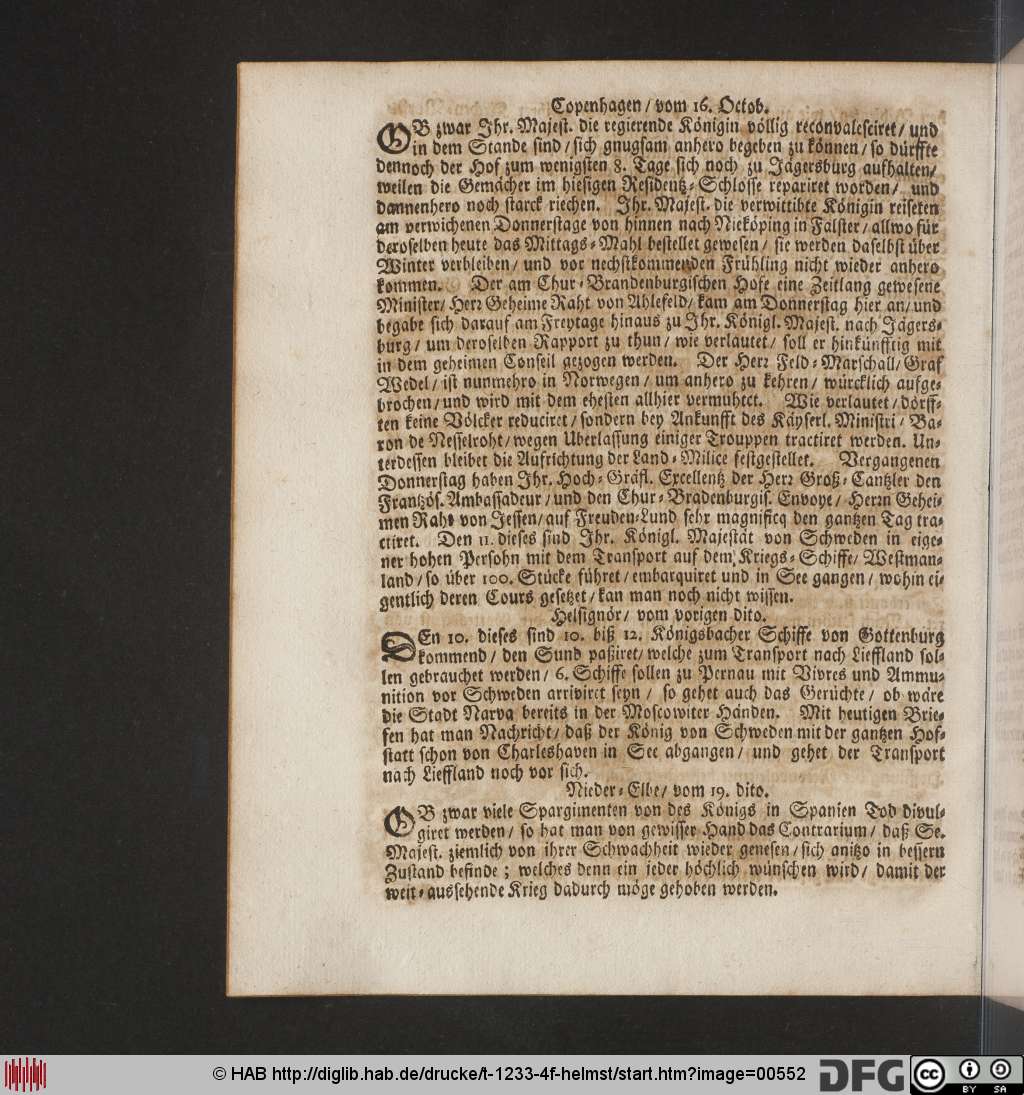 Copenhagen / vom 16. Octob.
OB zwar Ihr. Majest. die regierende Königin völlig reconvalesciret / und
in dem Stande sind / sich gnugsam anhero begeben zu können / so dürffte
dennoch der Hof zum wenigsten 8. Tage sich noch zu Jägersburg aufhalten /
weilen die Gemächer im hiesigen Residentz-Schlosse repariret worden / und
dannenhero noch starck riechen. Ihr. Majest. die verwittibte Königin reiseten
am verwichenen Donnerstage von hinnen nach Nieköping in Falster / allwo für
deroselben heute das Mittags-Mahl bestellet gewesen / sie werden daselbst über
Winter verbleiben / und vor nechstkommenden Frühling nicht wieder anhero
kommen. Der am Chur-Brandenburgischen Hofe eine Zeitlang gewesene
Minister / Herr Geheime Raht von Ahlefeld / kam am Donnerstag hier an / und
begabe sich darauf am Freytage hinaus zu Ihr. Königl. Majest. nach Jägers-
burg / um deroselben Rapport zu thun / wie verlautet / soll er hinkünfftig mit
in dem geheimen Conseil gezogen werden. Der Herr Feld-Marschall / Graf
Wedel / ist nunmehro in Norwegen / um anhero zu kehren / würcklich aufge-
brochen / und wird mit dem ehesten allhier vermuhtet. Wie verlautet / dörff-
ten keine Völcker reduciret / sondern bey Ankunfft des Käyserl. Ministri / Ba-
ron de Nesselroht / wegen Uberlassung einiger Trouppen tractiret werden. Un-
terdessen bleibet die Aufrichtung der Land-Milice festgestellet. Vergangenen
Donnerstag haben Ihr. Hoch-Gräfl. Excellentz der Herr Groß-Cantzler den
Frantzös. Ambassadeur / und den Chur-Bradenburgis. Envoye / Herrn Gehei-
men Raht von Jessen / auf Freuden-Lund sehr magnificq den gantzen Tag tra-
ctiret. Den 11. dieses sind Ihr. Königl. Majestät von Schweden in eige-
ner hohen Persohn mit dem Transport auf dem Kriegs-Schiffe / Westman-
land / so über 100. Stücke führet / embarquiret und in See gangen / wohin ei-
gentlich deren Cours gesetzet / kan man noch nicht wissen.
Helsignör / vom vorigen dito.
DEn 10. dieses sind 10. biß 12. Königsbacher Schiffe von Gottenburg
kommend / den Sund paßiret / welche zum Transport nach Lieffland sol-
len gebrauchet werden / 6. Schiffe sollen zu Pernau mit Vivres und Ammu-
nition vor Schweden arriviret seyn / so gehet auch das Gerüchte / ob wäre
die Stadt Narva bereits in der Moscowiter Händen. Mit heutigen Brie-
fen hat man Nachricht / daß der König von Schweden mit der gantzen Hof-
statt schon von Charleshaven in See abgangen / und gehet der Transport
nach Lieffland noch vor sich.
Nieder-Elbe / vom 19. dito.
OB zwar viele Spargimenten von des Königs in Spanien Tod divul-
giret werden / so hat man von gewisser Hand das Contrarium / daß Se.
Majest. ziemlich von ihrer Schwachheit wieder genesen / sich anitzo in bessern
Zustand befinde ; welches denn ein jeder höchlich wünschen wird / damit der
weit-aussehende Krieg dadurch möge gehoben werden.
© HAB http://diglib.hab.de/drucke/t-1233-4f-helmst/start.htm?image=00552
DFG
cc BY SA